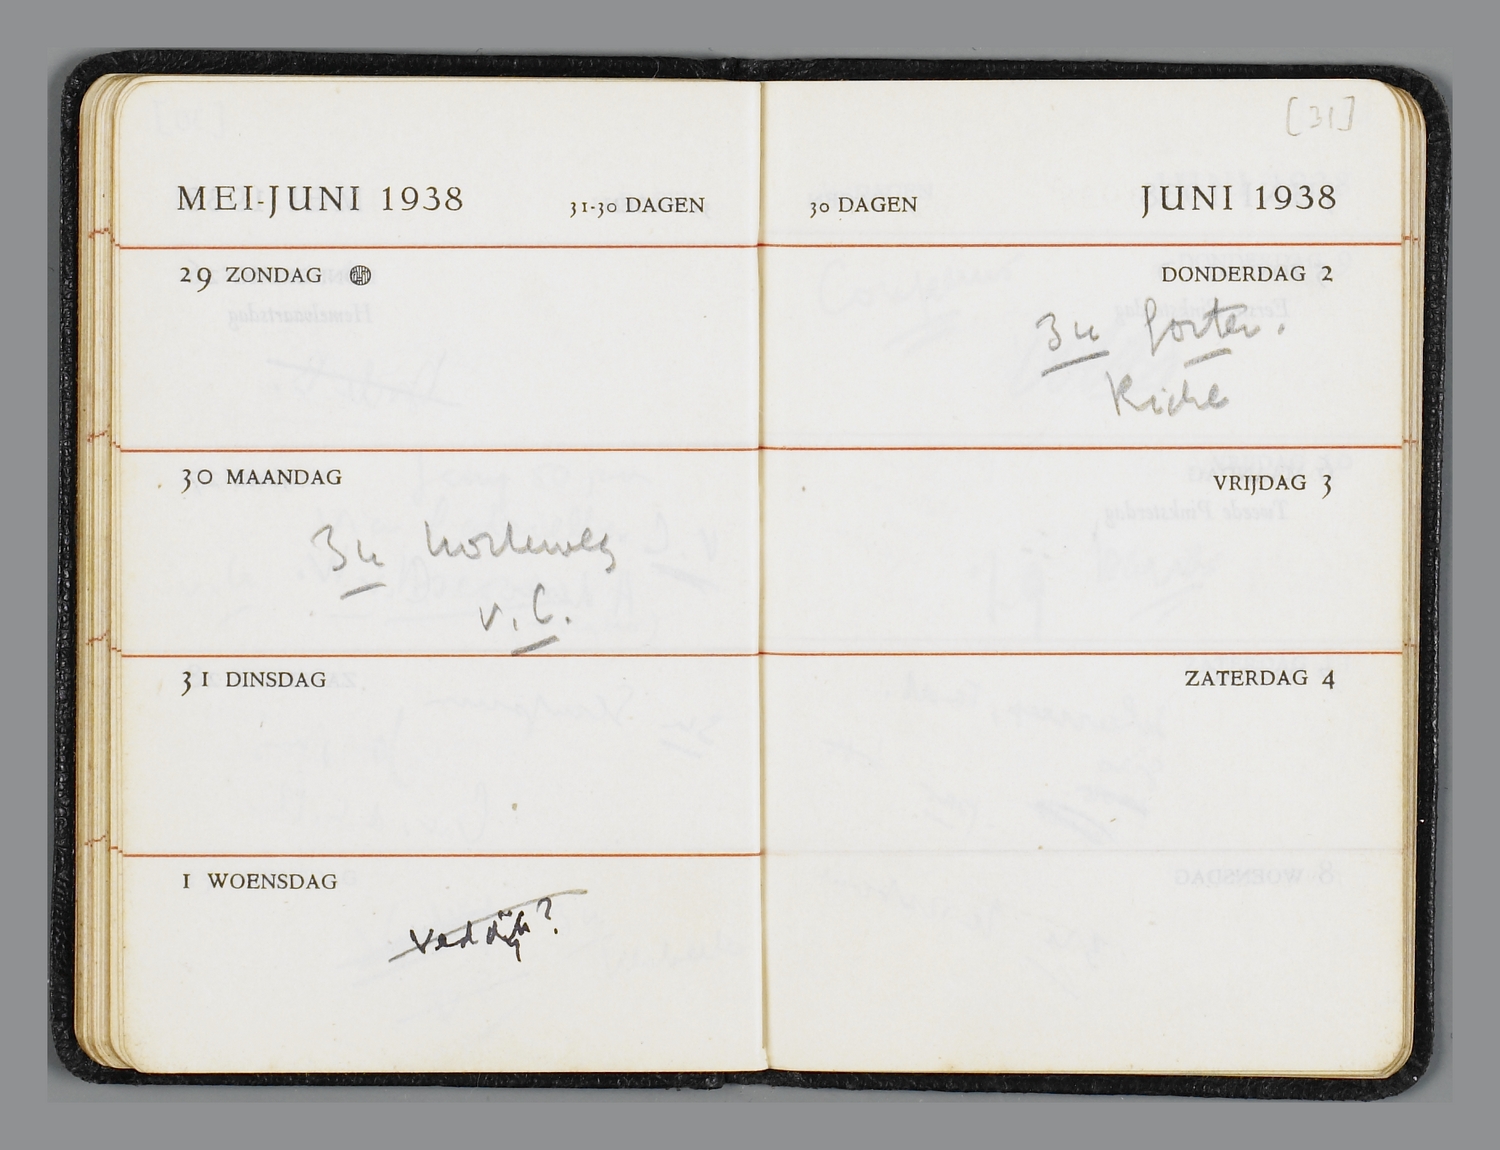 MEI-JUNI 1938 31-30 DAGEN
29 ZONDAG
30 MAANDAG
3u Korteweg
v. C.
31 DINSDAG
1 WOENSDAG
[31]
30 DAGEN JUNI 1938
DONDERDAG 2
3u Gorter.
VRIJDAG 3
ZATERDAG 4